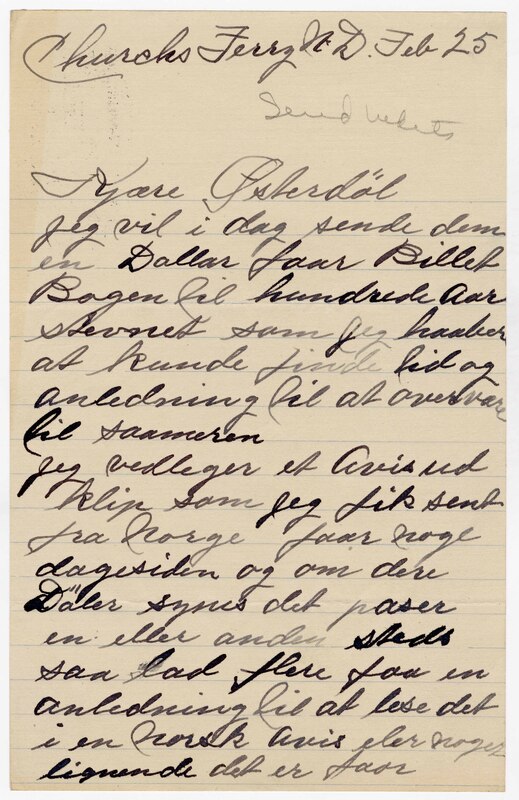 Churchs Ferry N.D. Feb 25
Send
Kjære Østerdöl
jeg vil i dag sende dem
en Dollar faar Billet
Bogen til hundrede Aar
stevnet som jeg haaber
at kunde finde tid og
anledning til at overvare
til saameren
jeg vedleger et Avis ud
klip som jeg fik sent
fra Norge faar noge
dagesiden og om dere
"Døler" synes det paser
en eller anden steds
saa lad flere faa en
anledning til at lese det
i en Norsk Avis eler noget
lignende det er faar